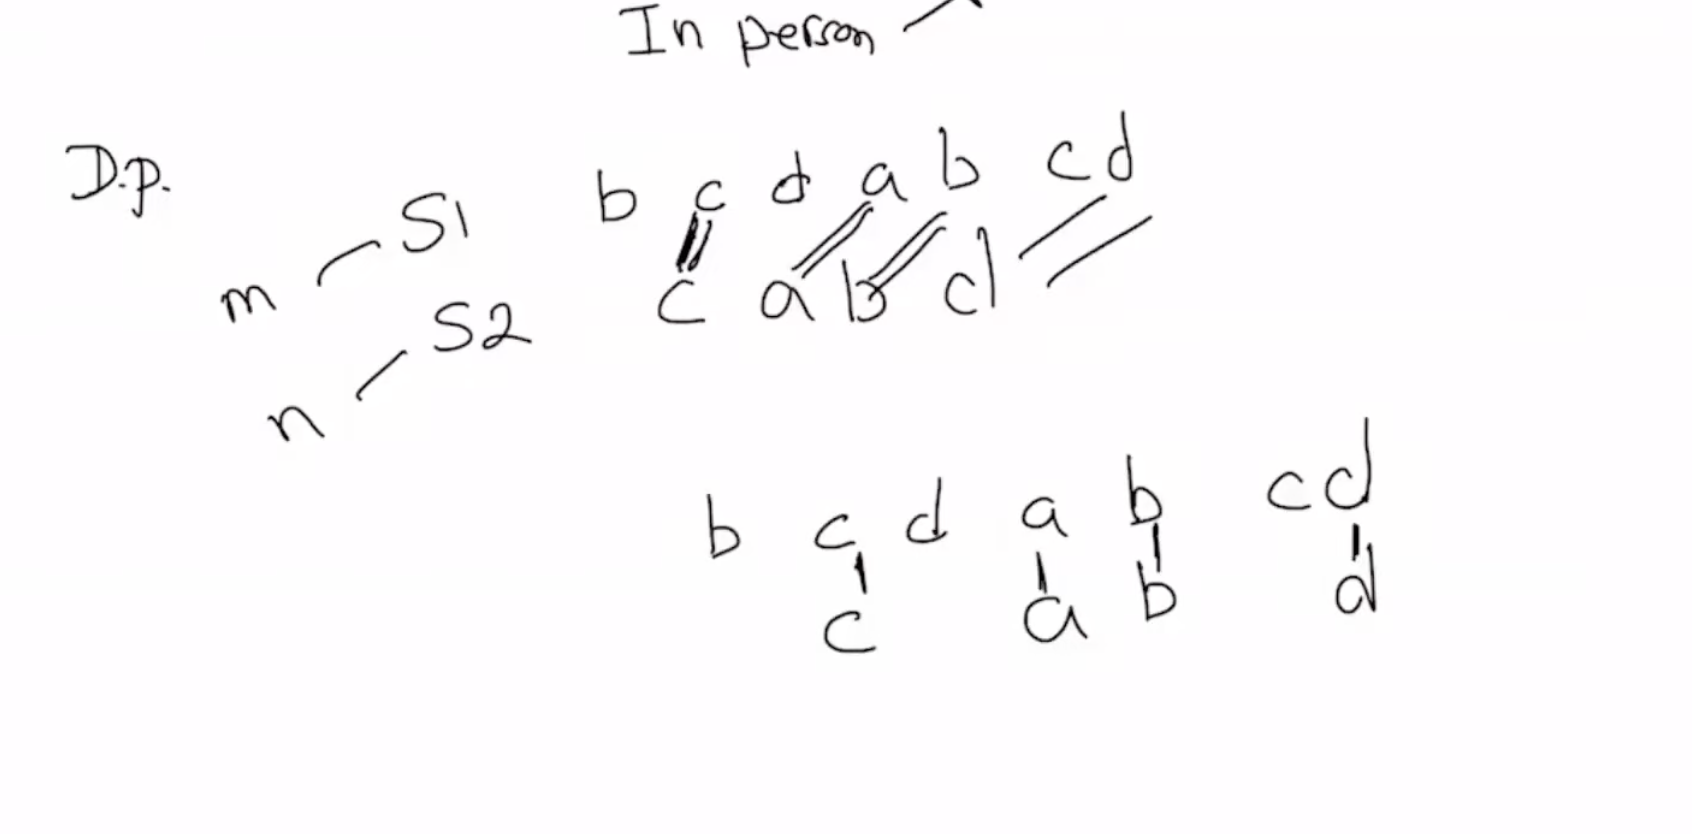 In person
D.p.
S1 b c d a b c d
m
S2 c a b d
n
b c d a b c d
c a b d